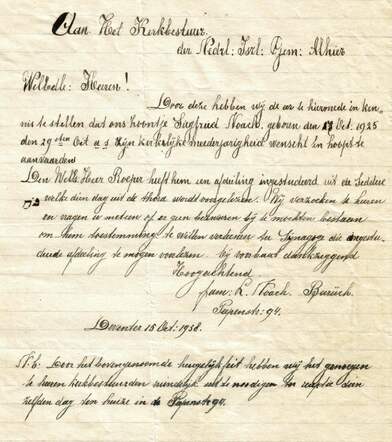 Aan Het Kerkbestuur.
der Nedrl: Isrl: Gem: Alhier
Weledle: Heeren!
Door deze hebben wij de eer te hiermede in ken-
nis te stellen, dat ons zoontje Sagfried Noach, geboren den 17 Oct. 1925
den 29sten Oct a s zijn kerkelijke meederjarigheid wenscht in hoofst te
aanvaarden
Den WelEr. Heer Roeper heeft hem en afdeiling ingestudeerd uit de Siddere
welke dien dag uit de thora wordt voorgelezen. Wij verzoeken te heeren
en vragen te meten of er geen bezwaren bij te mochten bestaan
om hem toestemming te willen verleenen ter Synagoge die ingestu-
deerde afdeiling te mogen voorlezen. bij voorbaat dankzeggend
Hoogachtend
fam: L. Noach. Buruch.
Papenstr: 94.
Deventer 18 Oct: 1938.
N.b. Door het bovengenoemde heugelijk feit hebben wij het genoegen
te heeren kerkbestuurders vriendelijk uit te noodigen ter receptie dien
zelfden dag ten huize in de Papenstr 94.